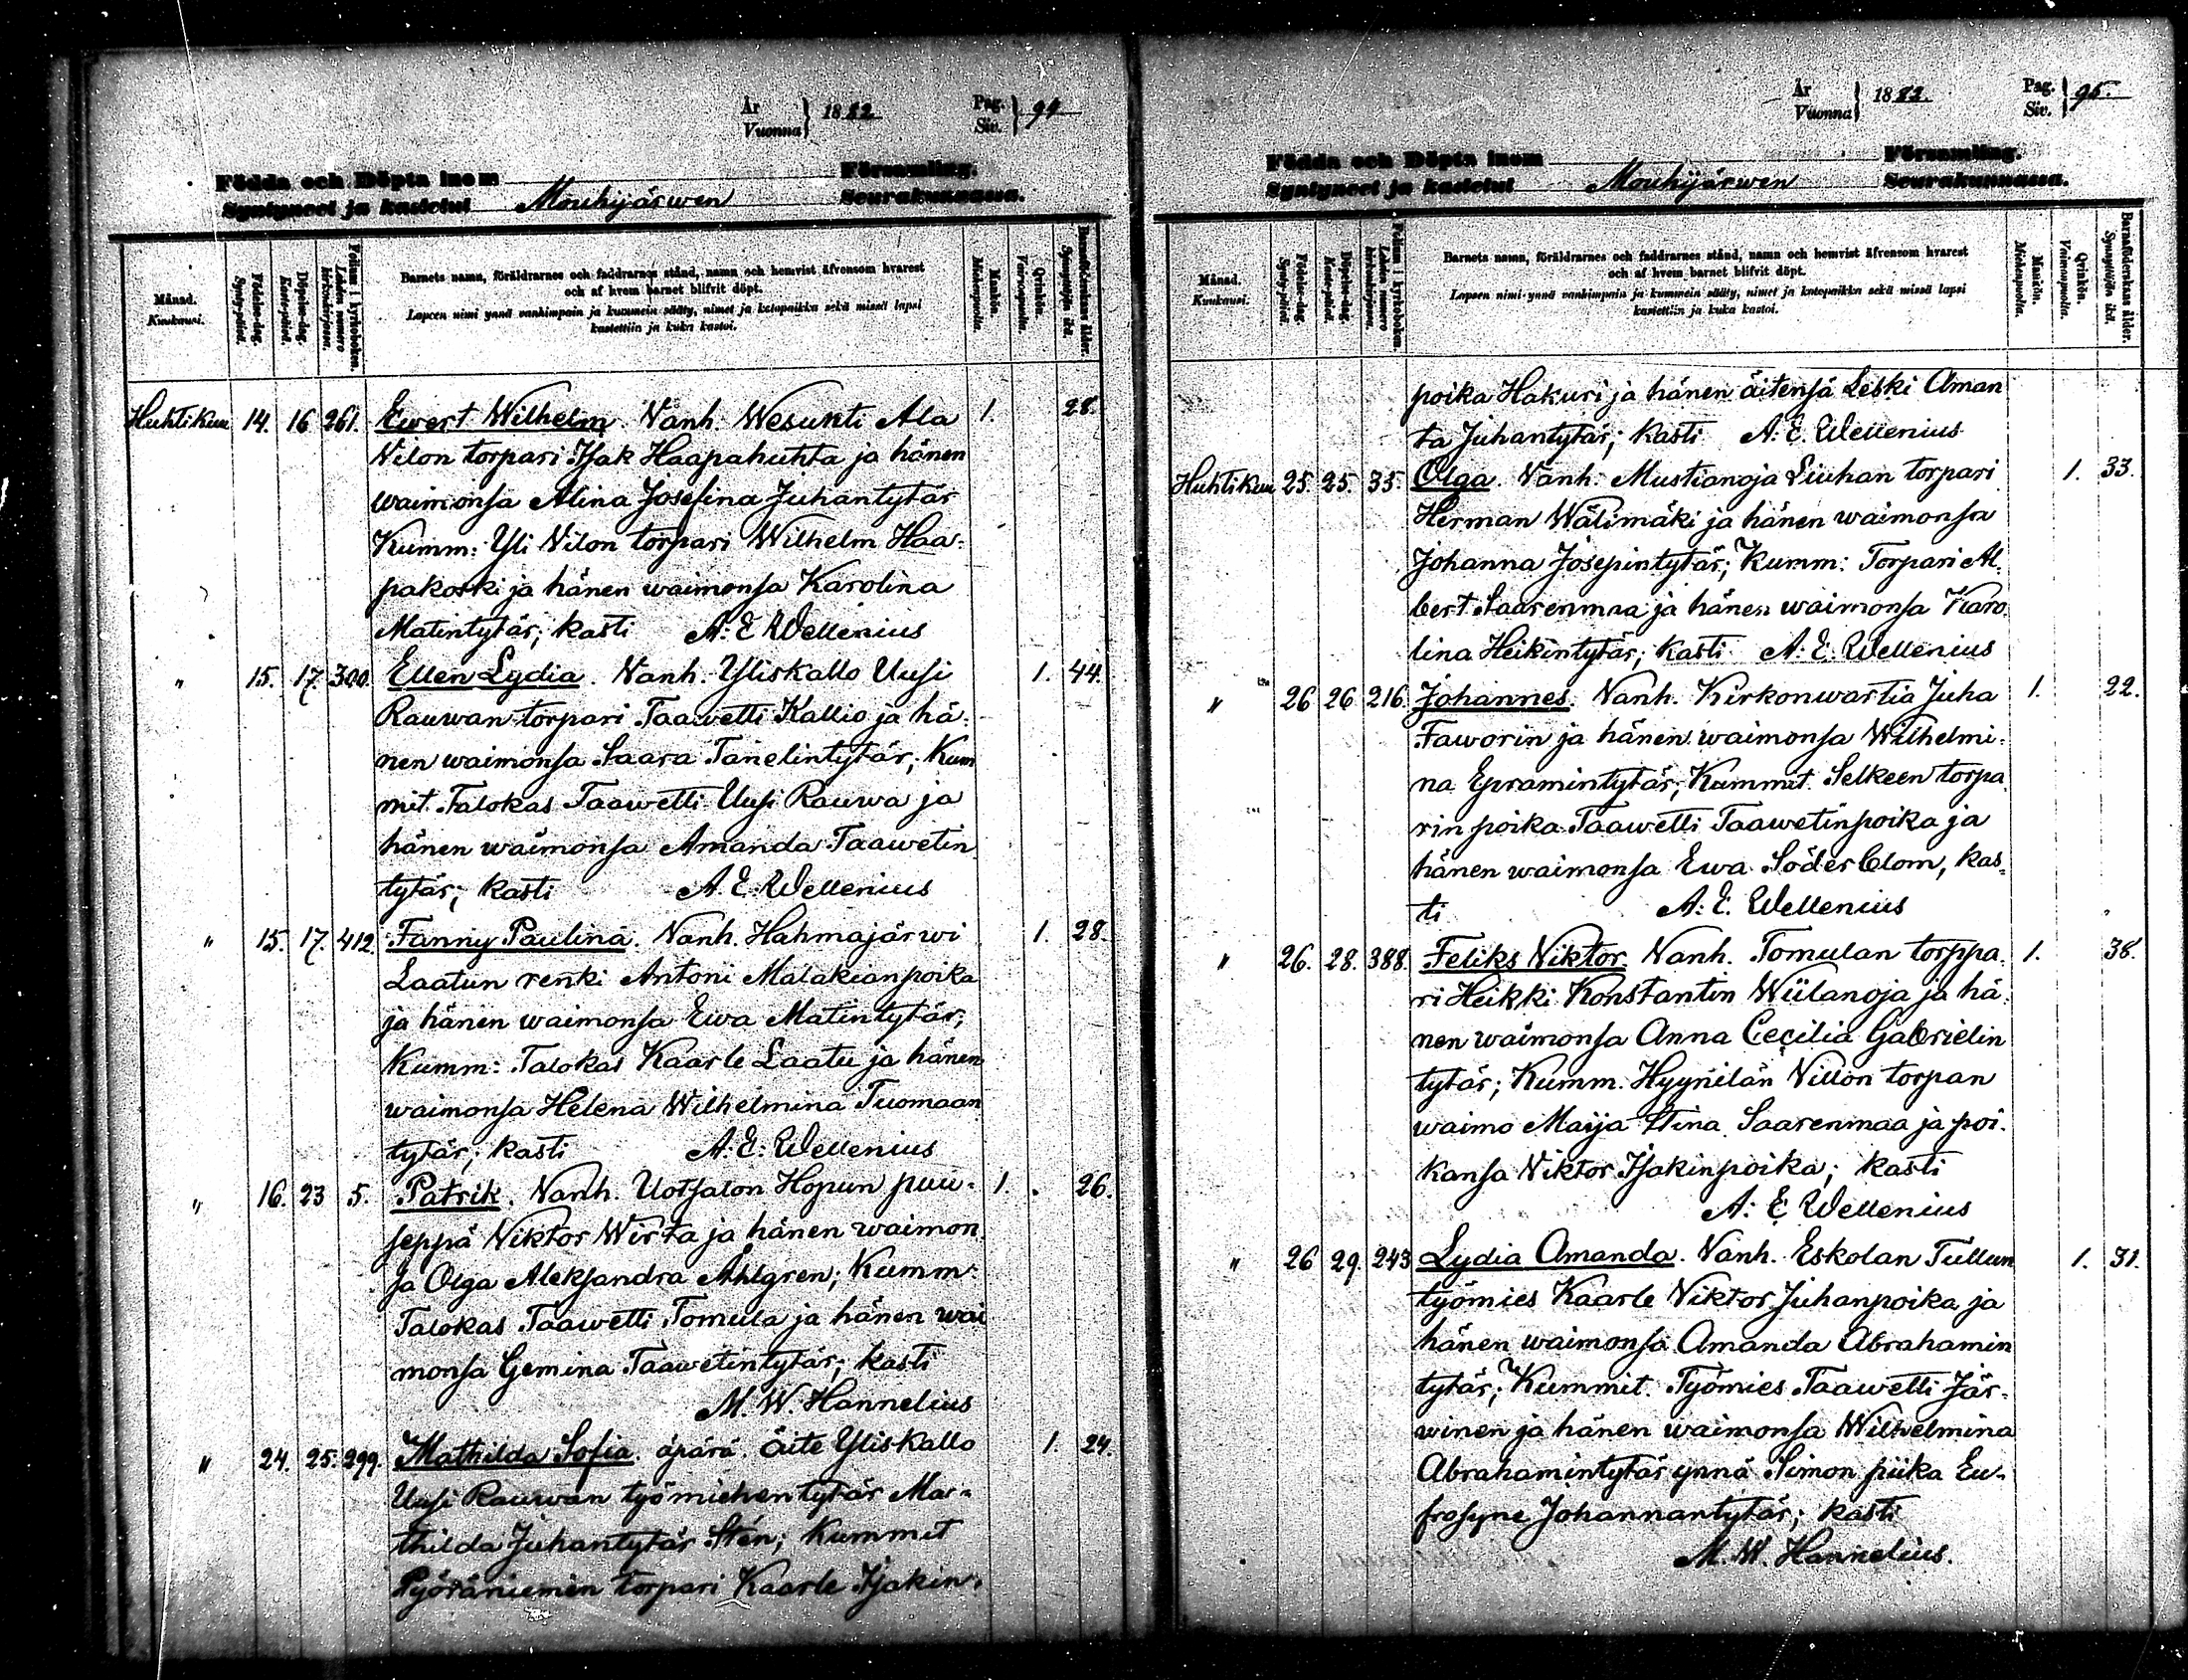 År
Vuonna } 1882. Pag.
Siv. } 94
Födda och Döpta inom Församling.
Syntyneet ja kastetut Mouhijärwen Seurakunnassa.
Månad.
Kuukausi.
Födelse-dag.
Synty-päivä.
Döpelse-dag.
Kaste-päivä.
Folium i kyrkoboken.
Lehden numero
kirkonkirjassa.
Barnets namn, föräldrarnes och faddrarnes stånd, namn och hemvist äfvensom hvarest
och af hvem barnet blifvit döpt.
Lapsen nimi ynnä vanhimpain ja kummein sääty, nimet ja kotopaikka sekä missä lapsi
kastettiin ja kuka kastoi.
Mankön.
Miehenpuolta.
Qvinkön.
Vaimonpuolta.
Barnaföderskans ålder.
Synnyttäjän ikä.
Huhtikuu 14. 16 261. Ewert Wilhelm. Vanh. Wesunti Ala 1. 28.
Nilon torpari Isak Haapahuhta ja hänen
waimonsa Alina Josefina Juhantytär
Kumm: Yli Nilon torpari Wilhelm Haa-
pakoski ja hänen waimonsa Karolina
Matintytär; kasti A. E. Wellenius
" 15. 17. 300. Ellen Lydia. Vanh. Yliskallo Uusi 1. 44.
Rauwan torpari Taawetti Kallio ja hä-
nen waimonsa Saara Tanelintytär; Kum
mit. Talokas Taawetti Uusi Rauwa ja
hänen waimonsa Amanda Taawetin
tytär; kasti A. E. Wellenius
" 15. 17. 412. Fanny Paulina. Vanh. Hahmajärwi 1. 28.
Laatun renki Antoni Malakianpoika
ja hänen waimonsa Ewa Matintytär;
Kumm: Talokas Kaarle Laatu ja hänen
waimonsa Helena Wilhelmina Tuomaan
tytär; kasti A. E. Wellenius
" 16. 23 5. Patrik. Vanh. Uotsalon Hopun puu- 1. 26.
seppä Viktor Wirta ja hänen waimon
sa Olga Aleksandra Åhlgren; Kumm.
Talokas Taawetti Tomula ja hänen wai
monsa Gemina Taawetintytär; kasti
M. W. Hannelius
" 24. 25. 299. Mathilda Sofia. äpärä. Äite Yliskallo 1. 24.
Uusi Rauwan työmiehen tytär Mat-
thilda Juhantytär Stén; Kummit
Pyöräniemen torpari Kaarle Isakin-
År
Vuonna } 1882. Pag.
Siv. } 95.
Födda och Döpta inom Församling.
Syntyneet ja kastetut Mouhijärwen Seurakunnassa.
Månad.
Kuukausi.
Födelse-dag.
Synty-päivä.
Döpelse-dag.
Kaste-päivä.
Folium i kyrkoboken.
Lehden numero
kirkonkirjassa.
Barnets namn, föräldrarnes och faddrarnes stånd, namn och hemvist äfvensom hvarest
och af hvem barnet blifvit döpt.
Lapsen nimi ynnä vanhimpain ja kummein sääty, nimet ja kotopaikka sekä missä lapsi
kastettiin ja kuka kastoi.
Mankön.
Miehenpuolta.
Qvinkön.
Vaimonpuolta.
Barnaföderskans ålder.
Synnyttäjän ikä.
poika Hakuri ja hänen äitensä Leski Aman
ta Juhantytär; kasti A. E. Wellenius
Huhtikuu 25. 25. 35. Olga. Vanh. Mustianoja Liuhan torpari 1. 33.
Herman Wälimäki ja hänen waimonsa
Johanna Josepintytär; Kumm: Torpari Al-
bert Saarenmaa ja hänen waimonsa Karo
lina Heikintytär; kasti A. E. Wellenius
" 26 26 216. Johannes. Vanh. Kirkonwartia Juha 1. 22.
Faworin ja hänen waimonsa Wilhelmi-
na Epramintytär; Kummit. Selkeen torpa
rin poika Taawetti Taawetinpoika ja
hänen waimonsa Ewa Söderblom, kas-
ti A. E. Wellenius
" 26. 28. 388. Feliks Viktor. Vanh. Tomulan torppa- 1. 38.
ri Heikki Konstantin Wiilanoja ja hä-
nen waimonsa Anna Cecilia Gabrielin
tytär; Kumm. Hyynilän Villon torpan
waimo Maija Stina Saarenmaa ja poi-
kansa Viktor Isakinpoika; kasti
A. E. Wellenius
" 26 29. 243 Lydia Amanda. Vanh. Eskolan Tullun 1. 31.
työmies Kaarle Viktor Juhanpoika ja
hänen waimonsa Amanda Abrahamin
tytär; Kummit. Työmies Taawetti Jär-
winen ja hänen waimonsa Wilhelmina
Abrahamintytär ynnä Simon piika Eu-
frosyne Johannantytär; kasti
M. W. Hannelius.